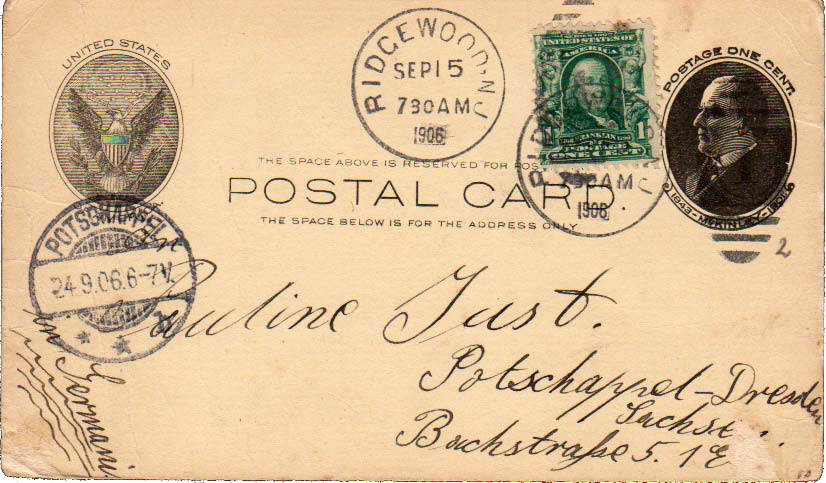 UNITED STATES
RIDGEWOOD, N.J.
SEP 15
730 AM
1906
SERIES 1902
UNITED STATES OF
AMERICA
FRANKLIN
POSTAGE
ONE CENT
1
POSTAGE ONE CENT.
1843-McKINLEY-1901
730 AM
1906
THE SPACE ABOVE IS RESERVED FOR POS
POSTAL CARD
THE SPACE BELOW IS FOR THE ADDRESS ONLY
2
POTSCHAPPEL
24.9.06.6-7V.
An
Pauline Just.
Potschappel-Dresden
Sachse
Bachstraße 5. 1E
in Germani